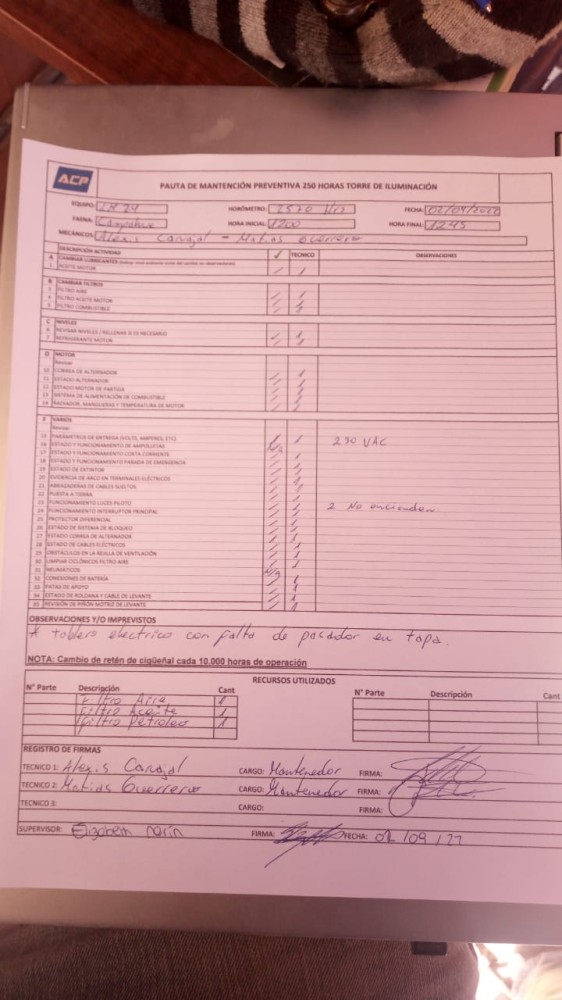 ACP
PAUTA DE MANTENCIÓN PREVENTIVA 250 HORAS TORRE DE ILUMINACIÓN
EQUIPO: HORÓMETRO: 2570 Hrs FECHA: 02/09/2022
FAENA: HORA INICIAL: 1200 HORA FINAL: 1245
MECÁNICOS: Alexis Carvajal - Matias Guerrero
DESCRIPCIÓN ACTIVIDAD ✓ TECNICO OBSERVACIONES
A CAMBIAR LUBRICANTES
ACEITE MOTOR / 1
B CAMBIAR FILTROS
FILTRO AIRE / 1
FILTRO ACEITE MOTOR / 1
FILTRO COMBUSTIBLE / 1
C NIVELES
REVISAR NIVELES / RELLENAR SI ES NECESARIO
REFRIGERANTE MOTOR / 1
D MOTOR
Revisar
10 CORREA DE ALTERNADOR / 1
11 ESTADO ALTERNADOR / 1
12 ESTADO MOTOR DE PARTIDA / 1
13 SISTEMA DE ALIMENTACIÓN DE COMBUSTIBLE / 1
14 RADIADOR, MANGUERAS Y TEMPERATURA DE MOTOR / 1
E VARIOS
Revisar
15 PARÁMETROS DE ENTREGA (VOLTS, AMPERES, ETC) / 1 230 VAC
16 ESTADO Y FUNCIONAMIENTO DE AMPOLLETAS
17 ESTADO Y FUNCIONAMIENTO CORTA CORRIENTE
18 ESTADO Y FUNCIONAMIENTO PARADA DE EMERGENCIA
19 ESTADO DE EXTINTOR
20 EVIDENCIA DE ARCO EN TERMINALES ELÉCTRICOS
21 ABRAZADERAS DE CABLES SUELTOS
22 PUESTA A TIERRA
23 FUNCIONAMIENTO LUCES PILOTO 2 No encienden
24 FUNCIONAMIENTO INTERRUPTOR PRINCIPAL
25 PROTECTOR DIFERENCIAL
26 ESTADO DE SISTEMA DE BLOQUEO
27 ESTADO CORREA DE ALTERNADOR
28 ESTADO DE CABLES ELÉCTRICOS
29 OBSTÁCULOS EN LA REJILLA DE VENTILACIÓN
30 LIMPIAR CICLÓNICOS FILTRO AIRE
31 NEUMÁTICOS N/A
32 CONEXIONES DE BATERÍA
33 PATAS DE APOYO
34 ESTADO DE ROLDANA Y CABLE DE LEVANTE
35 REVISIÓN DE PIÑÓN MOTRIZ DE LEVANTE
OBSERVACIONES Y/O IMPREVISTOS
* tablero electrico con falta de pasador en tapa.
NOTA: Cambio de retén de cigüeñal cada 10.000 horas de operación
RECURSOS UTILIZADOS
N° Parte Descripción Cant N° Parte Descripción Cant
Filtro Aire 1
Filtro Aceite 1
Filtro Petroleo 1
REGISTRO DE FIRMAS
TECNICO 1: Alexis Carvajal CARGO: Mantenedor FIRMA:
TECNICO 2: Matias Guerrero CARGO: Mantenedor FIRMA:
TECNICO 3: CARGO: FIRMA:
SUPERVISOR: Elizabeth Marin FIRMA: FECHA: 02/09/22